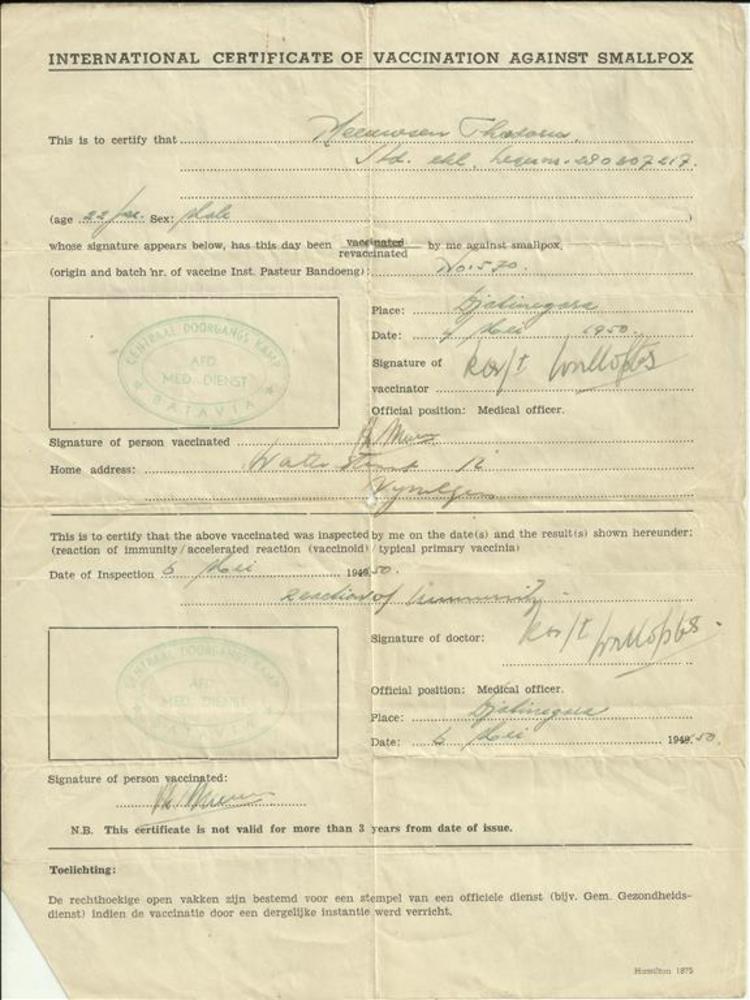 INTERNATIONAL CERTIFICATE OF VACCINATION AGAINST SMALLPOX
This is to certify that Meeuwsen Thodorus.
Sld. ekl. legernr. 280807217.
(age 22 jar. Sex: Male )
whose signature appears below, has this day been vaccinated by me against smallpox,
revaccinated
(origin and batch nr. of vaccine Inst. Pasteur Bandoeng): No: 570.
Place: Djatinegara
CENTRAAL DOORGANGS KAMP
AFD.
MED. DIENST
BATAVIA
Date: 4 Mei 1950.
Signature of
vaccinator
Official position: Medical officer.
Signature of person vaccinated
Home address: Water
This is to certify that the above vaccinated was inspected by me on the date(s) and the result(s) shown hereunder:
(reaction of immunity / accelerated reaction (vaccinoid) / typical primary vaccinia)
Date of Inspection 6 Mei 1949.50.
reaction of immunity
CENTRAAL DOORGANGS KAMP
AFD.
MED. DIENST
BATAVIA
Signature of doctor:
Official position: Medical officer.
Place: Djatinegara
Date: 6 Mei 1949.50.
Signature of person vaccinated:
N.B. This certificate is not valid for more than 3 years from date of issue.
Toelichting:
De rechthoekige open vakken zijn bestemd voor een stempel van een officiele dienst (bijv. Gem. Gezondheids-
dienst) indien de vaccinatie door een dergelijke instantie werd verricht.
Hamilton 1875